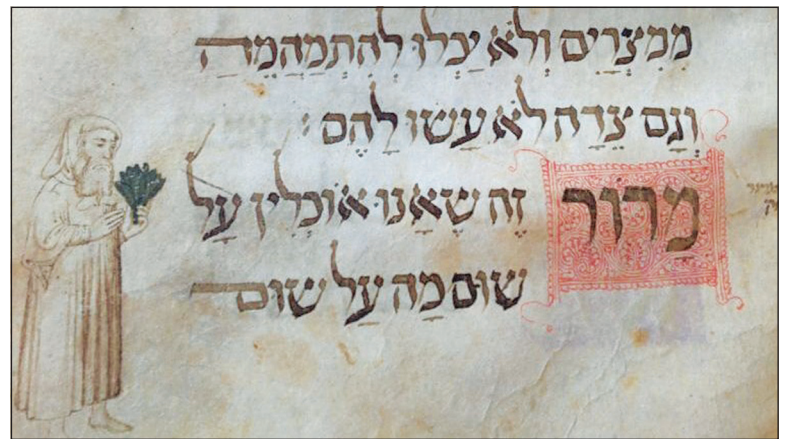 מִמִּצְרַיִם וְלֹא יָכְלוּ לְהִתְמַהְמֵהַּ
וְגַם צֵדָה לֹא עָשׂוּ לָהֶם:
מָרוֹר זֶה שֶׁאָנוּ אוֹכְלִין עַל
שׁוּם מָה עַל שׁוּם